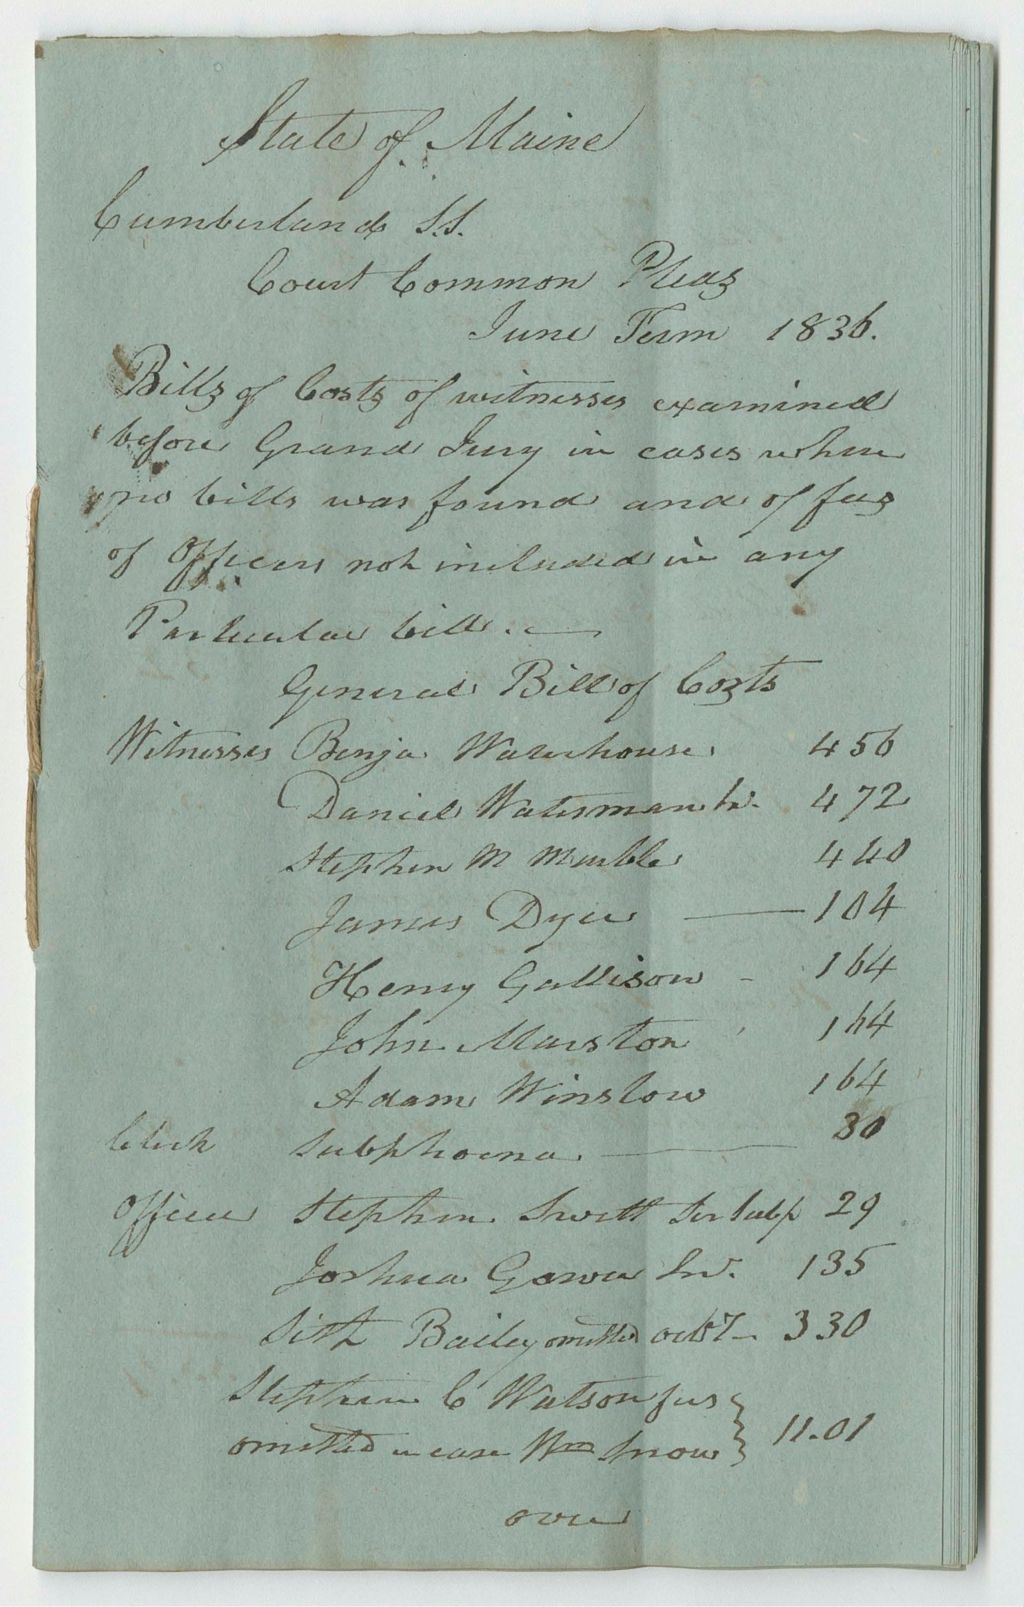 State of Maine
Cumberland S.S.
Court Common Pleas
June Term 1836.
Bills of Costs of witnesses examined
before Grand Jury in cases where
no bills was found and of fees
of Officers not included in any
Particular bill.
General Bill of Costs
Witnesses Benja Waterhouse 456
Daniel Waterman Jr. 472
Stephen M Marble 440
James Dyer 104
Henry Gallison 164
John Marston 164
Adam Winslow 164
Clerk Subphoena 30
Officer Stephen Swett Ser Subp 29
Joshua Gower 135
Seth Bailey omitted 330
Stephen C Watson fees
omitted in case Wm Snow } 11.01
over